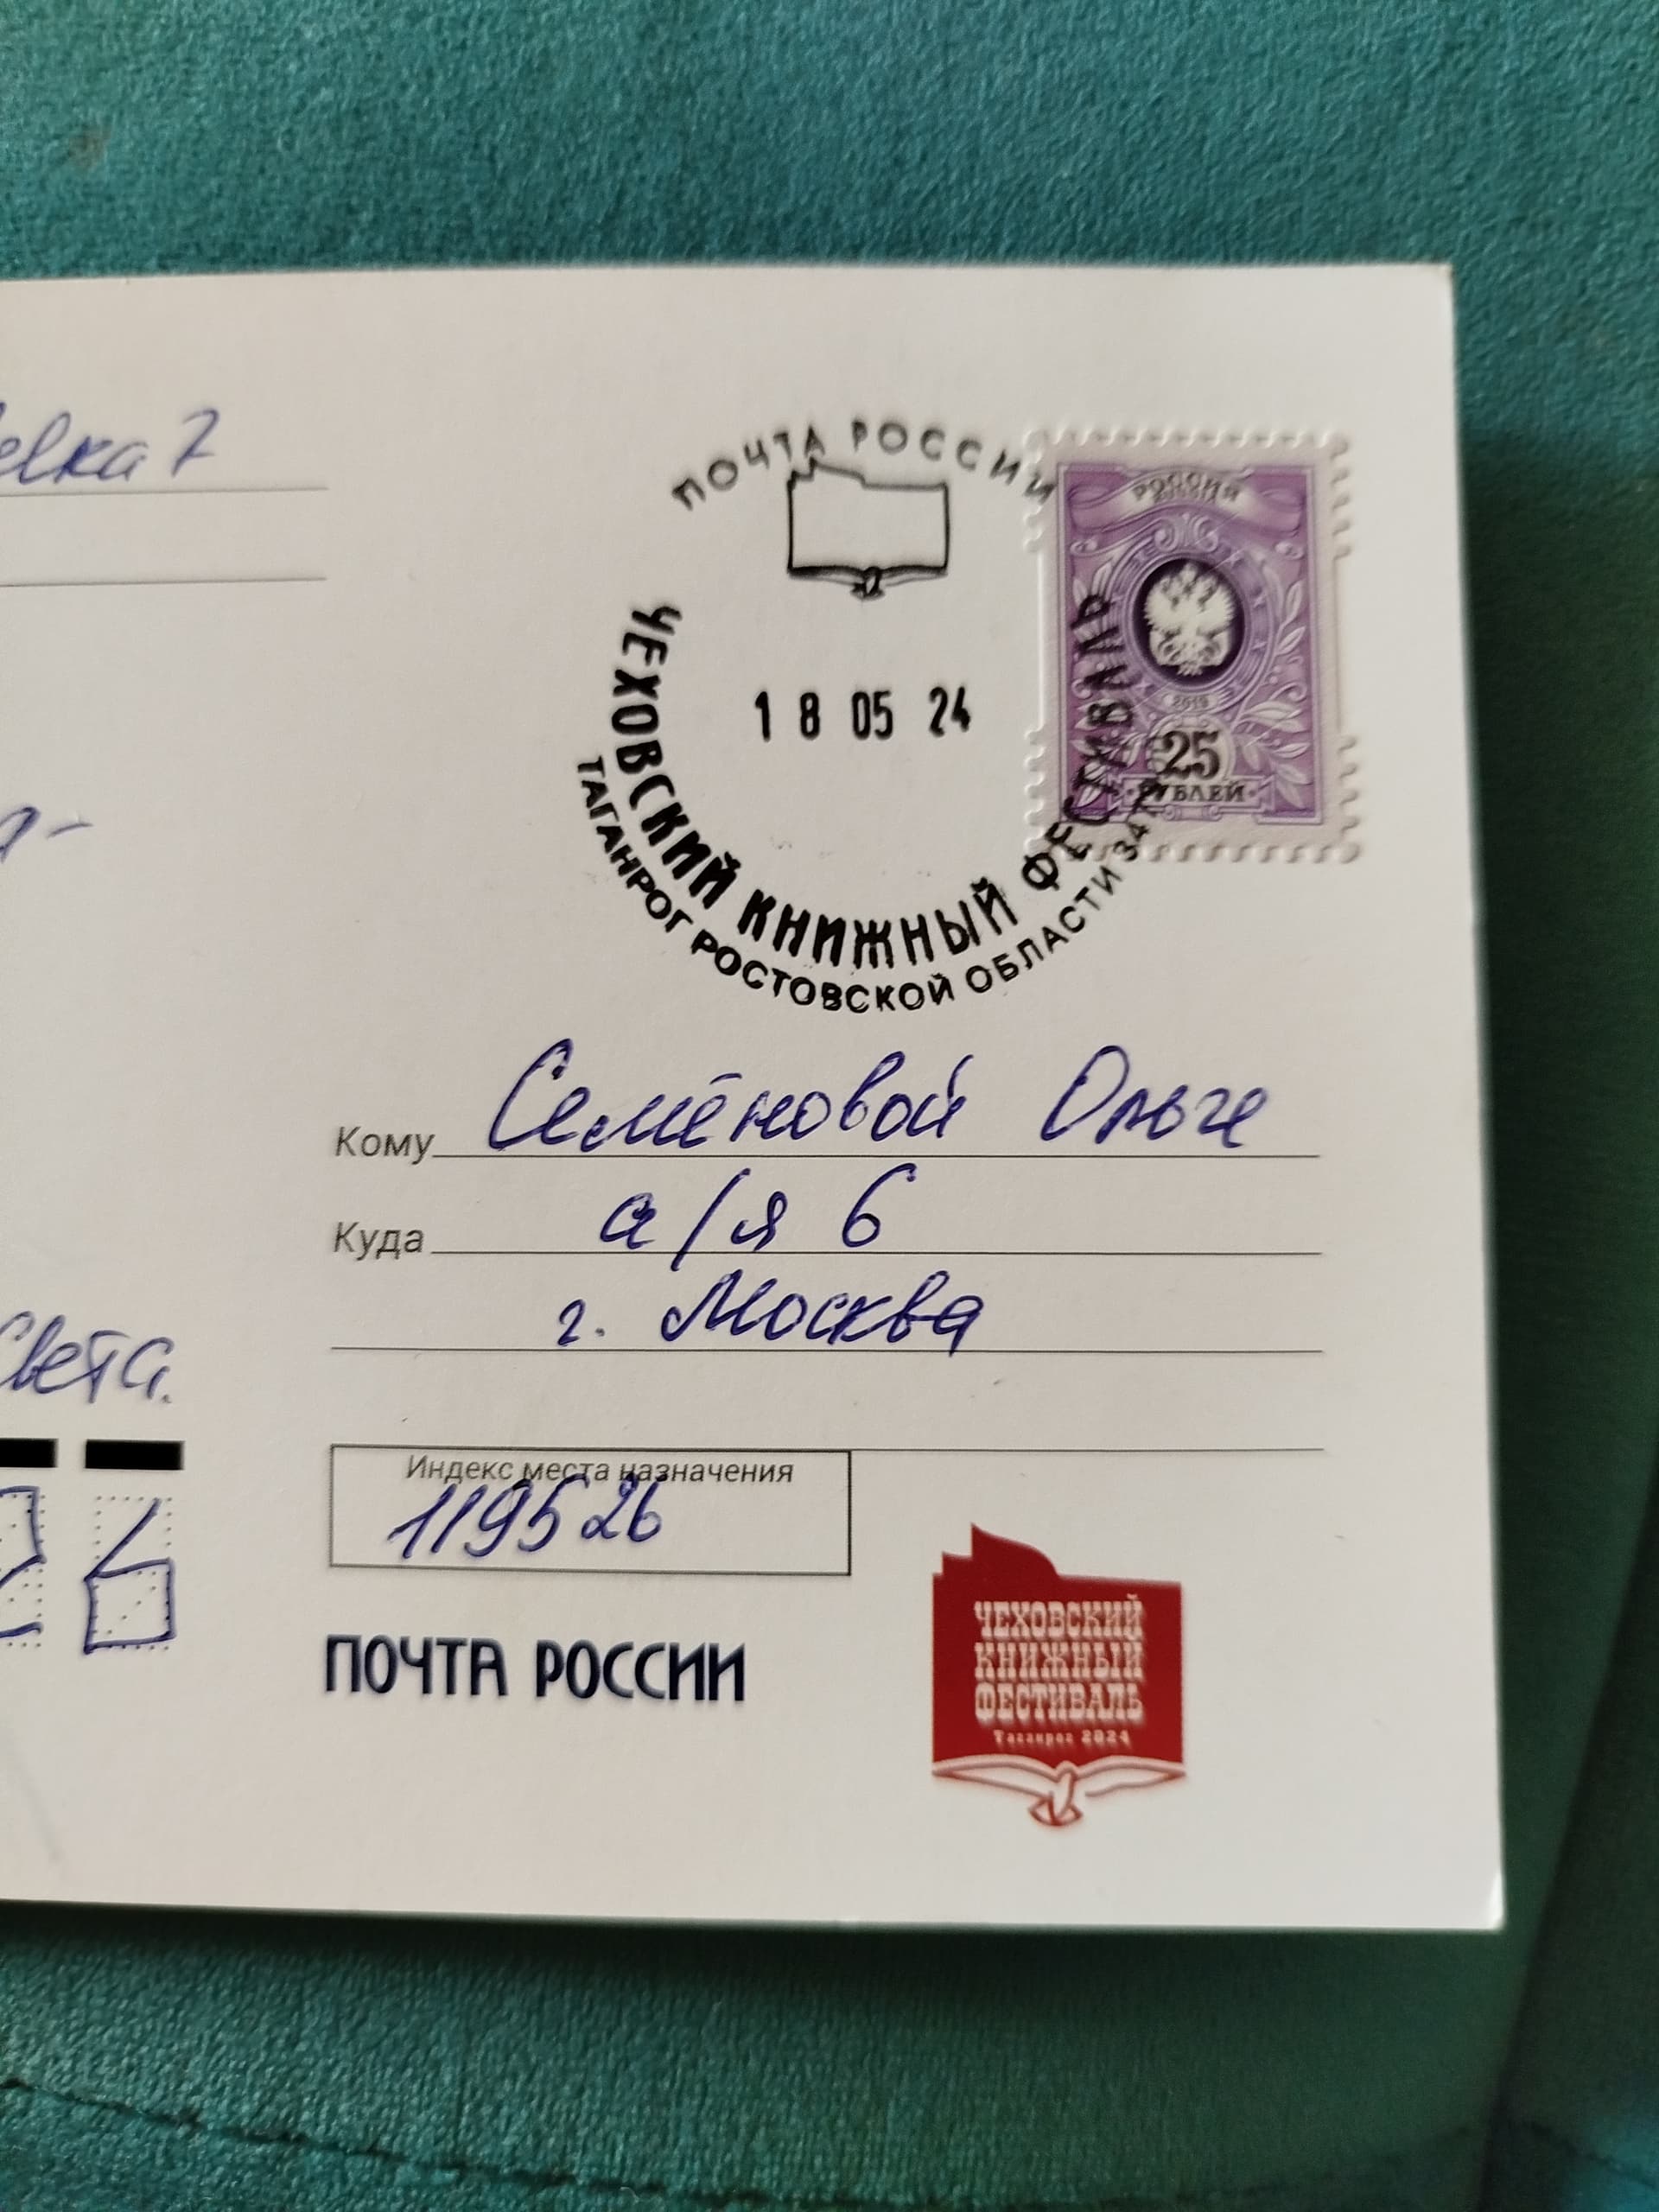 ПОЧТА РОССИИ
РОССИЯ
RUSSIA
2019
25
РУБЛЕЙ
18 05 24
ЧЕХОВСКИЙ КНИЖНЫЙ ФЕСТИВАЛЬ
ТАГАНРОГ РОСТОВСКОЙ ОБЛАСТИ
Кому Семёновой Ольге
Куда а/я 6
г. Москва
Света.
Индекс места назначения
119526
6
ПОЧТА РОССИИ
ЧЕХОВСКИЙ
КНИЖНЫЙ
ФЕСТИВАЛЬ
Таганрог 2024